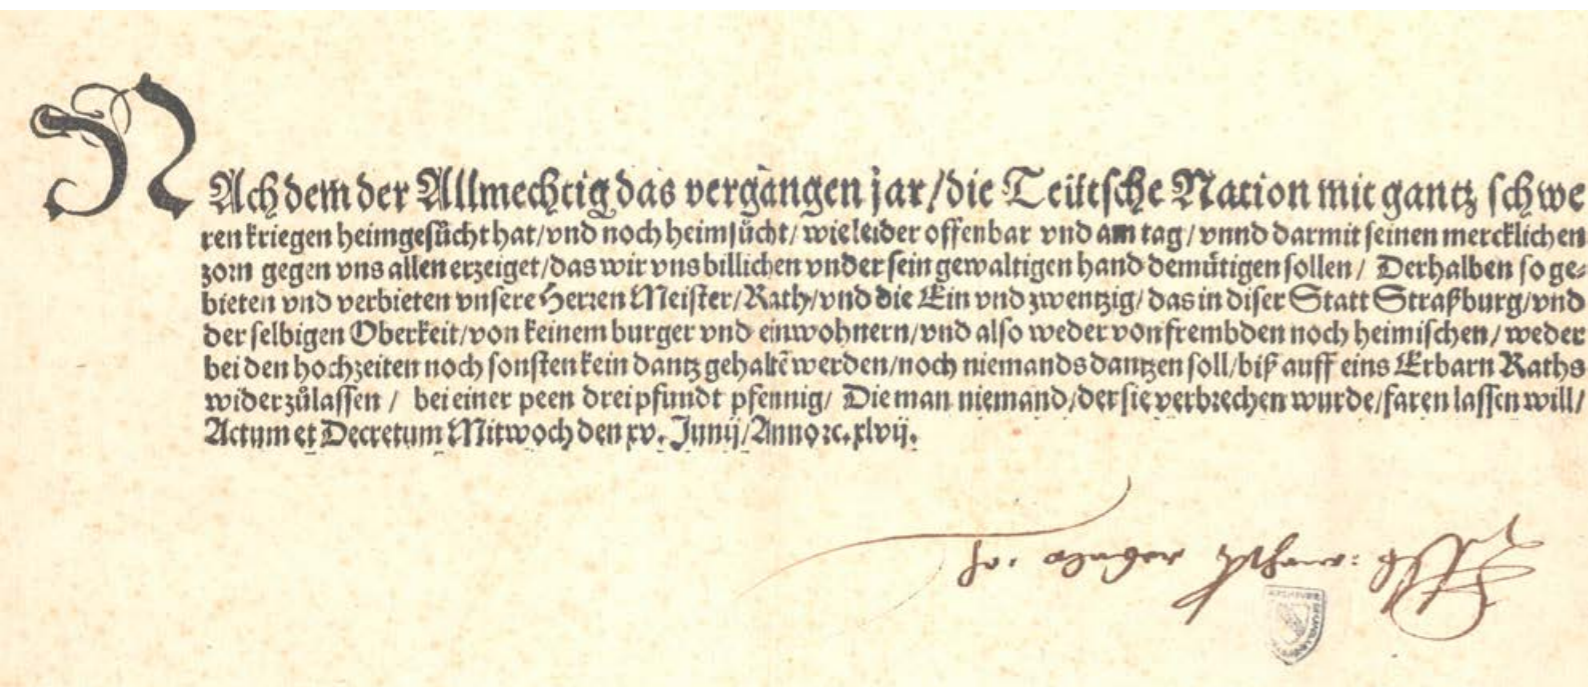 NAch dem der Allmechtig das vergangen jar/die Teütsche Nation mit gantz schwe
ren kriegen heimgesücht hat/vnd noch heimsücht/wie leider offenbar vnd am tag/vnnd darmit seinen mercklichen
zorn gegen vns allen erzeiget/das wir vns billichen vnder sein gewaltigen hand demütigen sollen/ Derhalben so ge⸗
bieten vnd verbieten vnsere Herren Meister/Rath/vnd die Ein vnd zwentzig/das in diser Statt Straßburg/vnd
der selbigen Oberkeit/von keinem burger vnd einwohnern/vnd also weder von frembden noch heimischen/weder
bei den hochzeiten noch sonsten kein dantz gehaltē werden/noch niemands dantzen soll/biß auff eins Erbarn Raths
widerzůlassen / bei einer peen drei pfundt pfennig/ Die man niemand/der sie verbrechen wurde/faren lassen will/
Actum et Decretum Mitwoch den xv. Junij/Anno ꝛc. xlvij.